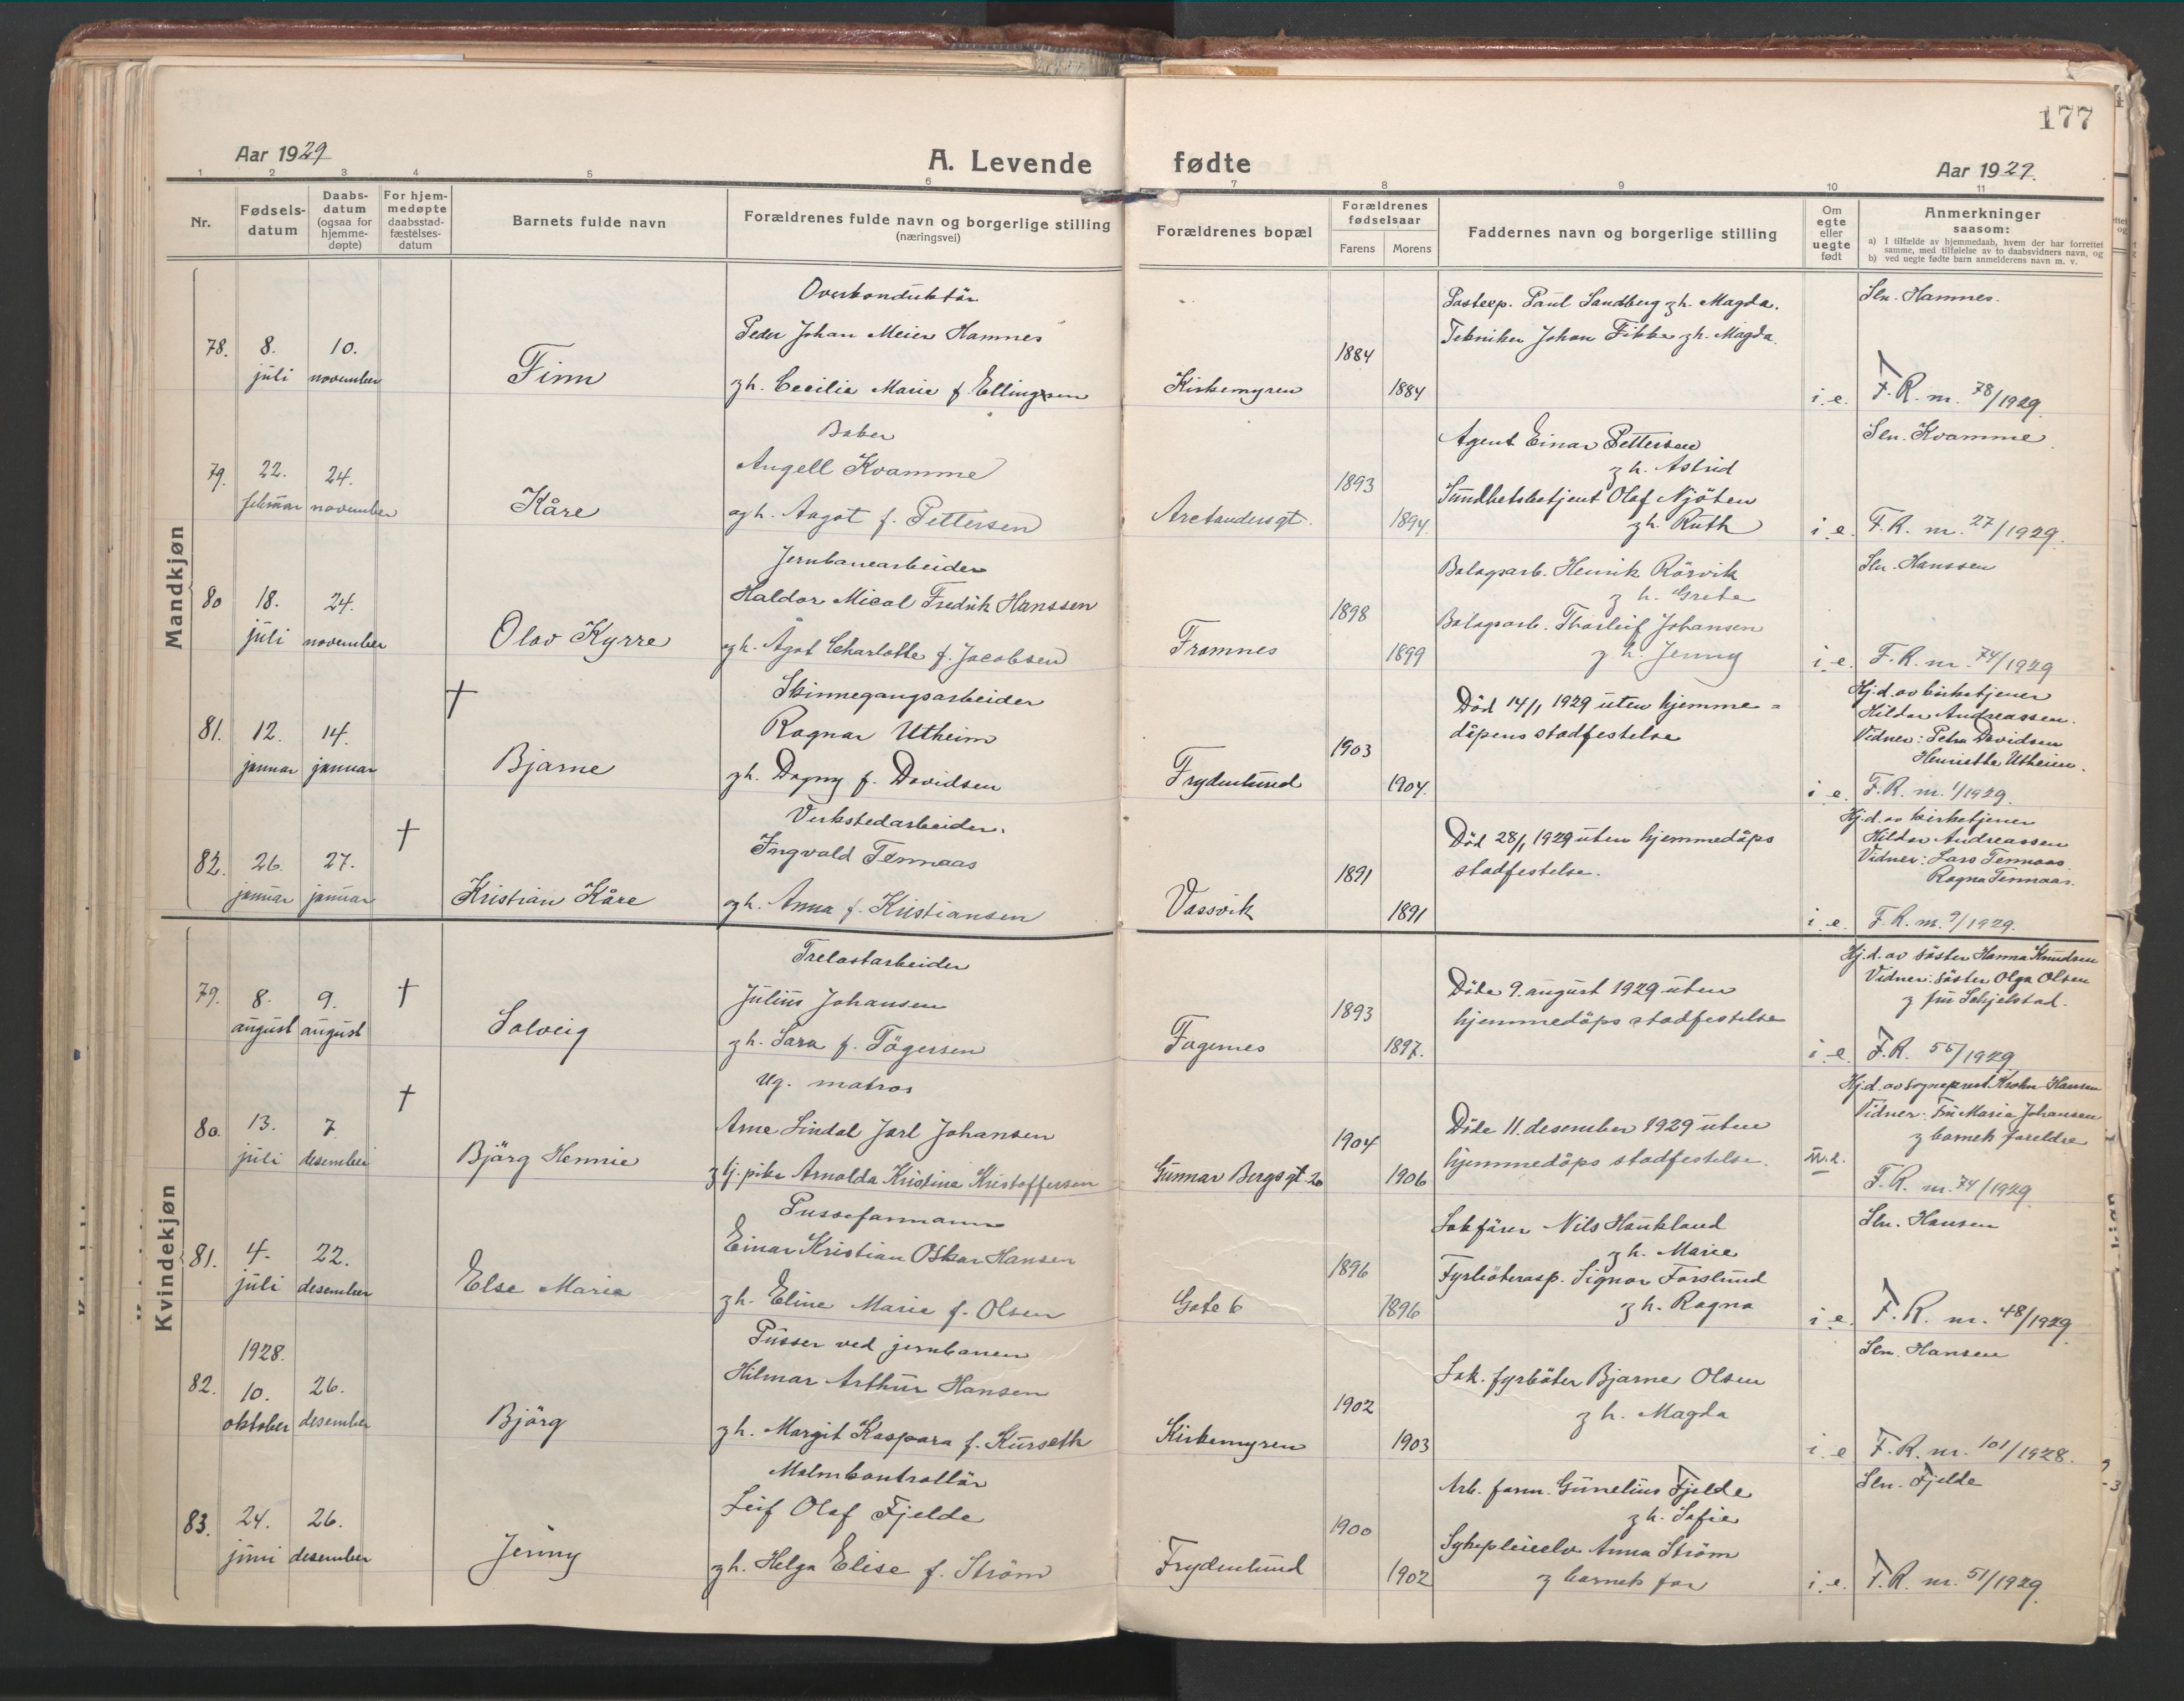 177
Aar 1929
A. Levende fødte
Aar 1929.
1 2 3 4 5 6 7 8 9 10 11
Nr.
Fødsels-
datum
Daabs-
datum
(ogsaa for
hjemme-
døpte)
For hjem-
medøpte
daabsstad-
fæstelses-
datum
Barnets fulde navn
Forældrenes fulde navn og borgerlige stilling
(næringsvei)
Forældrenes bopæl
Forældrenes
fødselsaar
Farens Morens
Faddernes navn og borgerlige stilling
Om
egte
eller
uegte
født
Anmerkninger
saasom:
a) I tilfælde av hjemmedaab, hvem der har forrettet
samme, med tilføielse av to daabsvidners navn, og
b) ved uegte fødte barn anmelderens navn m. v.
Mandkjøn
78.
8.
juli
10.
november
Finn
Overkonduktör
Peder Johan Meier Hamnes
og h. Cecilie Marie f. Ellingsen
Kirkemyren
1884
1884
Postexp. Paul Sandberg og h. Magda.
Tekniker Johan Fikke og h. Magda.
i. e.
Sln. Hamnes.
F. R. nr. 78/1929.
79.
22.
februar
24.
november
Kåre
Baker
Angell Kvamme
og h. Aagot f. Pettersen
Aretandersgt.
1893
1894.
Agent Einar Pettersen
og h. Astrid
Sundhetsbetjent Olaf Njöten
og h. Ruth
i. e.
Sln. Kvamme.
F. R. nr. 27/1929.
80
18.
juli
24.
november
Olav Kyrre
Jernbanearbeider
Haldor Mical Fredrik Hanssen
og h. Ågot Charlotte f. Jacobsen
Framnes
1898
1899
Bolagsarb. Henrik Rörvik
og h. Grete
Bolagsarb. Thorleif Johansen
og h. Jenny
i. e.
Sln. Hanssen
F. R. nr. 74/1929
81.
12.
januar
14.
januar
†
Bjarne
Skinnegangsarbeider
Ragnar Utheim
og h. Dagny f. Davidsen
Frydenlund
1903
1904.
Död 14/1 1929 uten hjemme-
dåpens stadfestelse
i. e.
Hj. d. av kirketjener
Hildor Andreassen.
Vidner: Petra Davidsen
Henriette Utheim.
F. R. nr. 1/1929.
82.
26.
januar
27.
januar
†
Kristian Kåre
Verkstedarbeider.
Ingvald Tennaas
og h. Anna f. Kristiansen
Vassvik
1891
1891
Död 28/1 1929 uten hjemmedåps
stadfestelse.
i. e.
Hj. d. av kirketjener
Hildor Andreassen
Vidner: Lars Tennaas
Ragna Tennaas.
F. R. nr. 9/1929.
Kvindekjøn
79.
8.
august
9.
august
†
Solveig
Trelastarbeider
Julius Johansen
og h. Sara f. Tögersen
Fagernes
1893
1897.
Döde 9. august 1929 uten
hjemmedåps stadfestelse
i. e.
Hj. d. av söster Hanna Knudsen
Vidner: söster Olga Olsen
og fru Schjelstad.
F. R. 55/1929
80.
13.
juli
7
desember
†
Björg Hennie
Ug. matros
Arne Lindal Jarl Johansen
og tj. pike Arnolda Kristine Kristoffersen
Gunnar Bergsgt. 26
1904
1906
Döde 11. desember 1929 uten
hjemmedåps stadfestelse.
u. e.
Hj. d. av sogneprest Krohn-Hansen
Vidner: Fru Marie Johansen
og barnets foreldre
F. R. nr. 74/1929
81.
4.
juli
22.
desember
Else Marie
Pusseformann
Einar Kristian Oskar Hansen
og h. Eline Marie f. Olsen
Gate 6
1896
1896
Lokförer Nils Haukland
og h. Marie
Fyrböterasp. Signor Forslund
og h. Ragna
i. e.
Sln. Hansen
F. R. nr. 48/1929
82.
1928.
10.
oktober
26.
desember
Björg
Pusser ved jernbanen
Hilmar Arthur Hansen
og h. Margit Kaspara f. Kurseth
Kirkemyren
1902
1903
Lok. fyrböter Bjarne Olsen
og h. Magda
i. e
Sln. Hansen
F. R. nr. 101/1928.
83.
24.
juni
26.
desember
Jenny
Malmkontrollör
Leif Olaf Fjelde
og h. Helga Elise f. Ström
Frydenlund
1900
1902
Arb. form. Gunelius Fjelde
og h. Sofie
Sykepleieelv Anna Ström
og barnets far
i. e.
Sln. Fjelde
F. R. nr. 51/1929.